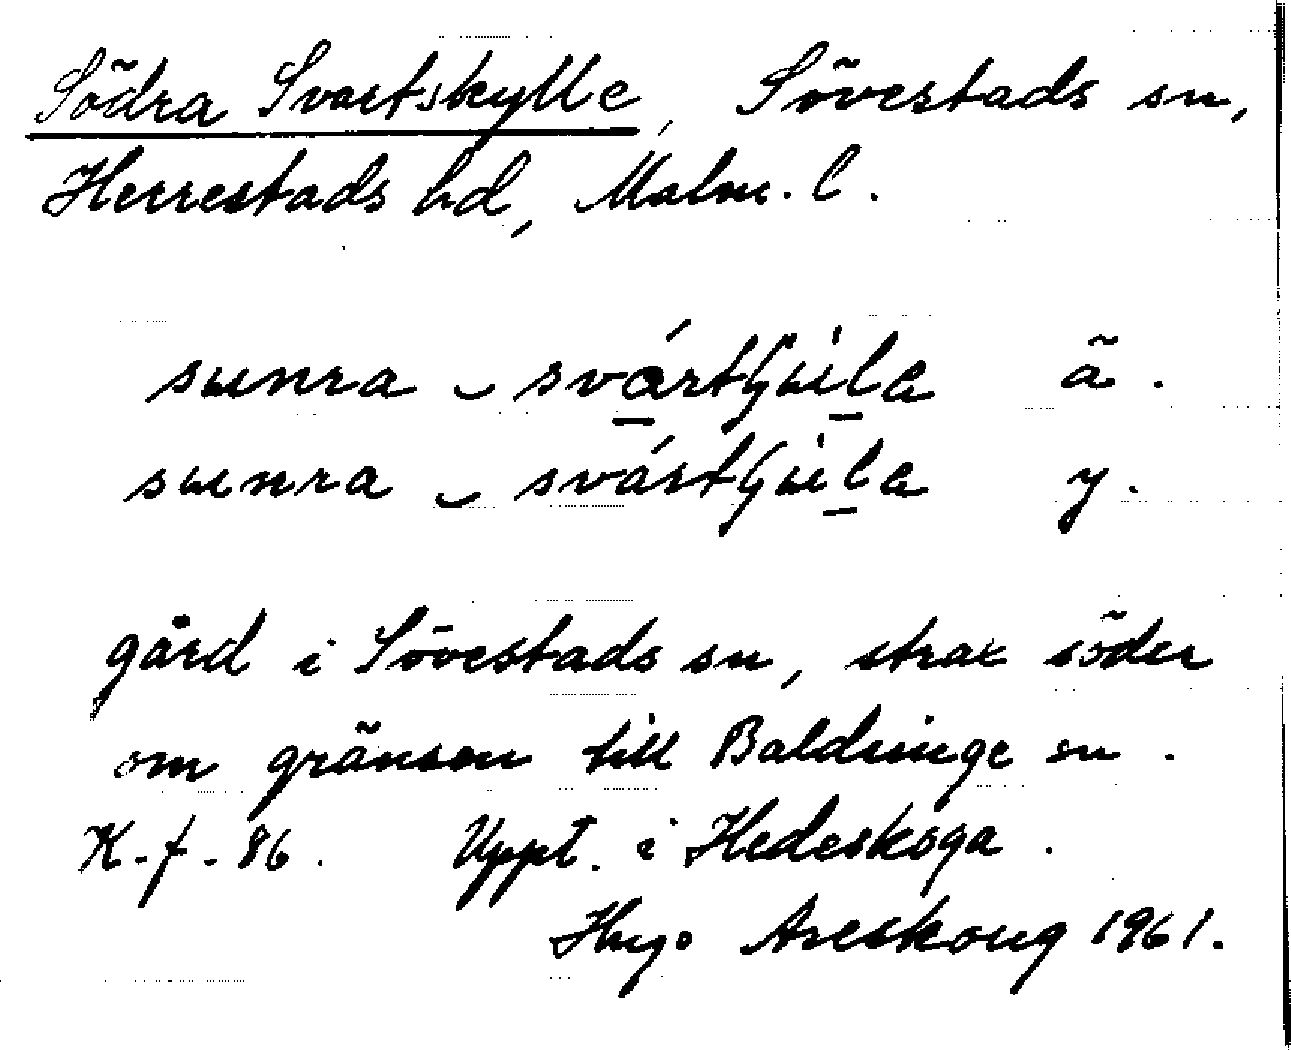 Södra Svartskylle, Sövestads sn,
Herrestads hd, Malm. l.
sunra ‿ svártʃüla ä.
sunra ‿ svártʃüla y.
gård i Sövestads sn, strax söder
om gränsen till Baldringe sn.
K-f-86. Uppt. i Hedeskoga.
Hugo Areskoug 1961.